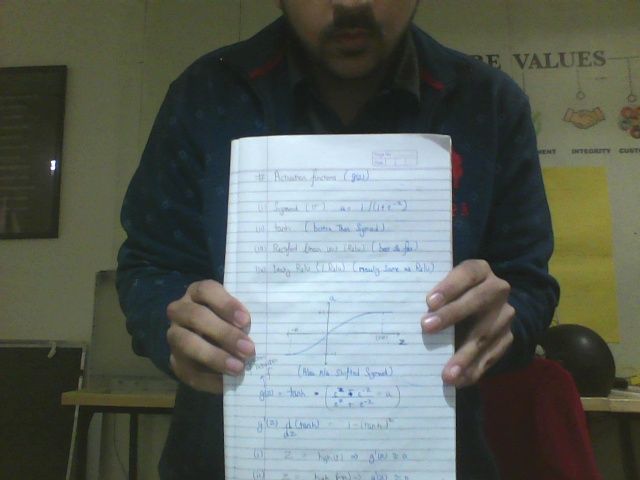 RE VALUES
MENT INTEGRITY CUSTO
Page No.
Date
# Activation functions (g(z))
i) Sigmoid (σ) a = 1/(1+e^-z)
ii) tanh (better than Sigmoid)
iii) Rectified linear unit (Relu)
iv) Leaky Relu (L Relu) (mostly same as Relu)
a
z
(Also k/a Shifted Sigmoid)
g(z) = tanh = (e^z - e^-z / e^z + e^-z = a)
g'(z) d/dz (tanh) = 1 - (tanh)²
(i) z = high (+) ⇒ g'(z) ≅ 0
(ii) z = high ⇒ g'(z) ≅ 0